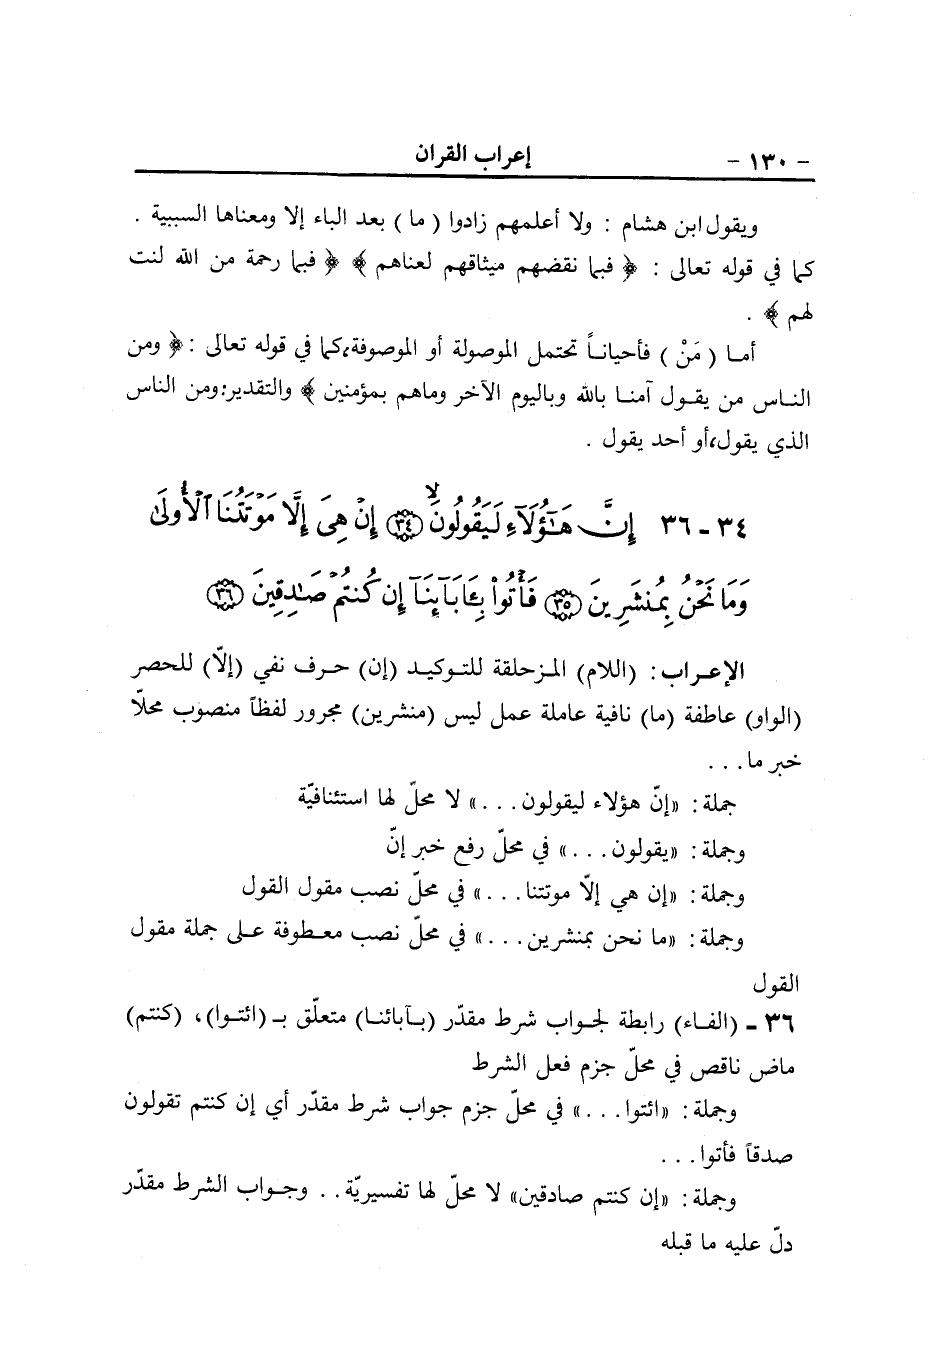 - ١٣٠ - إعراب القرآن
ويقول ابن هشام : ولا أعلمهم زادوا ( ما ) بعد الباء إلا ومعناها السببية .
كما في قوله تعالى : ﴿ فبما نقضهم ميثاقهم لعناهم ﴾ ﴿ فبما رحمة من الله لنت
لهم ﴾ .
أما ( مَنْ ) فأحياناً تحتمل الموصولة أو الموصوفة،كما في قوله تعالى :﴿ ومن
الناس من يقول آمنا بالله وباليوم الآخر وماهم بمؤمنين ﴾ والتقدير:ومن الناس
الذي يقول،أو أحد يقول .
٣٤ - ٣٦ إِنَّ هَٰٓؤُلَآءِ لَيَقُولُونَ ۙ ﴿٣٤﴾ إِنْ هِىَ إِلَّا مَوْتَتُنَا ٱلْأُولَىٰ
وَمَا نَحْنُ بِمُنشَرِينَ ﴿٣٥﴾ فَأْتُوا۟ بِـَٔابَآئِنَآ إِن كُنتُمْ صَٰدِقِينَ ﴿٣٦﴾
الإعراب : (اللام) المزحلقة للتوكيد (إن) حرف نفي (إلّا) للحصر
(الواو) عاطفة (ما) نافية عاملة عمل ليس (منشرين) مجرور لفظاً منصوب محلّا
خبر ما . . .
جملة : «إنّ هؤلاء ليقولون . . .» لا محلّ لها استئنافيّة
وجملة : «يقولون . . .» في محلّ رفع خبر إنّ
وجملة : «إن هي إلّا موتتنا . . .» في محلّ نصب مقول القول
وجملة : «ما نحن بمنشرين . . .» في محلّ نصب معطوفة على جملة مقول
القول
٣٦ - (الفاء) رابطة لجواب شرط مقدّر (بآبائنا) متعلّق بـ (ائتوا)، (كنتم)
ماض ناقص في محلّ جزم فعل الشرط
وجملة : «ائتوا . . .» في محلّ جزم جواب شرط مقدّر أي إن كنتم تقولون
صدقاً فأتوا . . .
وجملة : «إن كنتم صادقين» لا محلّ لها تفسيريّة . . وجواب الشرط مقدّر
دلّ عليه ما قبله